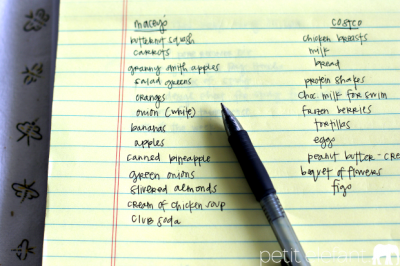 maceys
butternut squash
carrots
granny smith apples
salad greens
oranges
onion (white)
bananas
apples
canned pineapple
green onions
slivered almonds
cream of chicken soup
club soda
costco
chicken breasts
milk
bread
protein shakes
choc milk for swim
frozen berries
tortillas
eggo
peanut butter - cre
boquet of flowers
figo
petit elefant